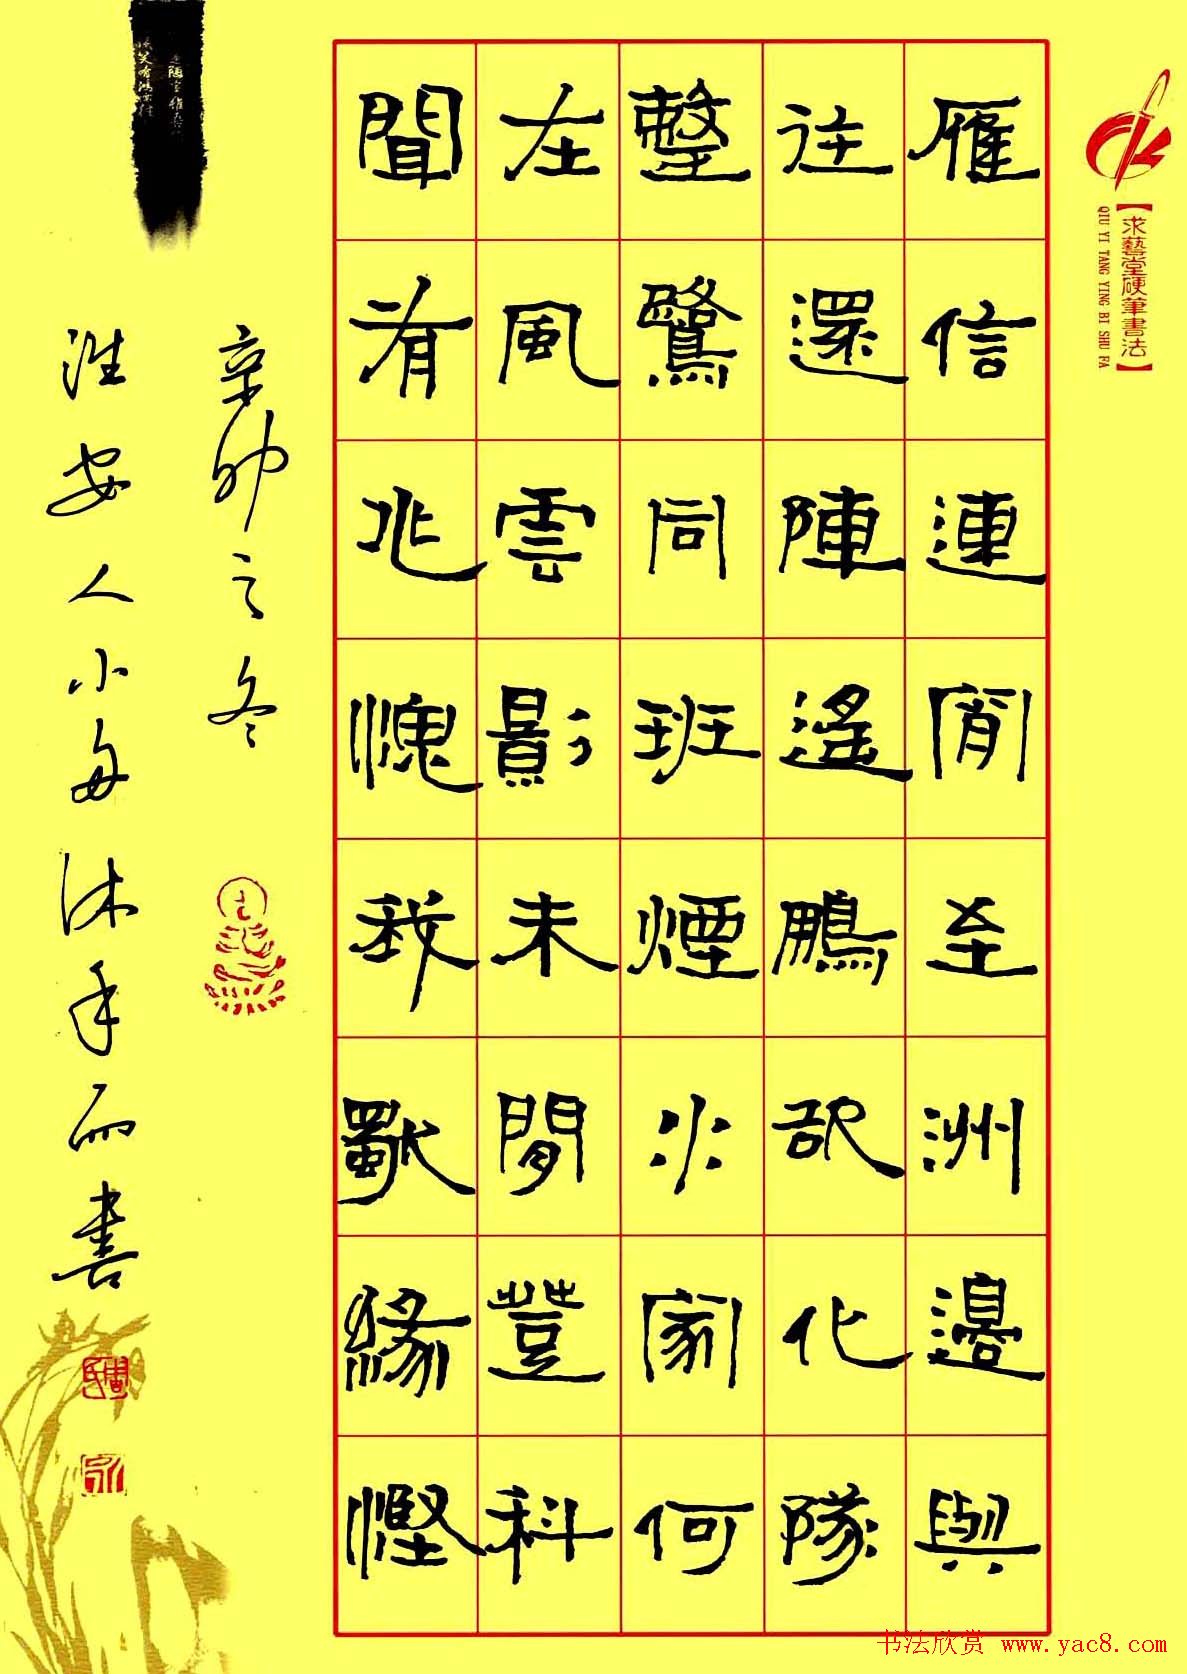 雁信連宵至洲邊與
往還陣遙鵬欲化隊
整鷺同班煙火家何
在風雲影未閒登科
聞有兆愧我獨緣慳
辛卯之冬
淮安人小舟沐手而書
【求藝堂硬筆書法】
QIU YI TANG YING BI SHU FA
书法欣赏 www.yac8.com